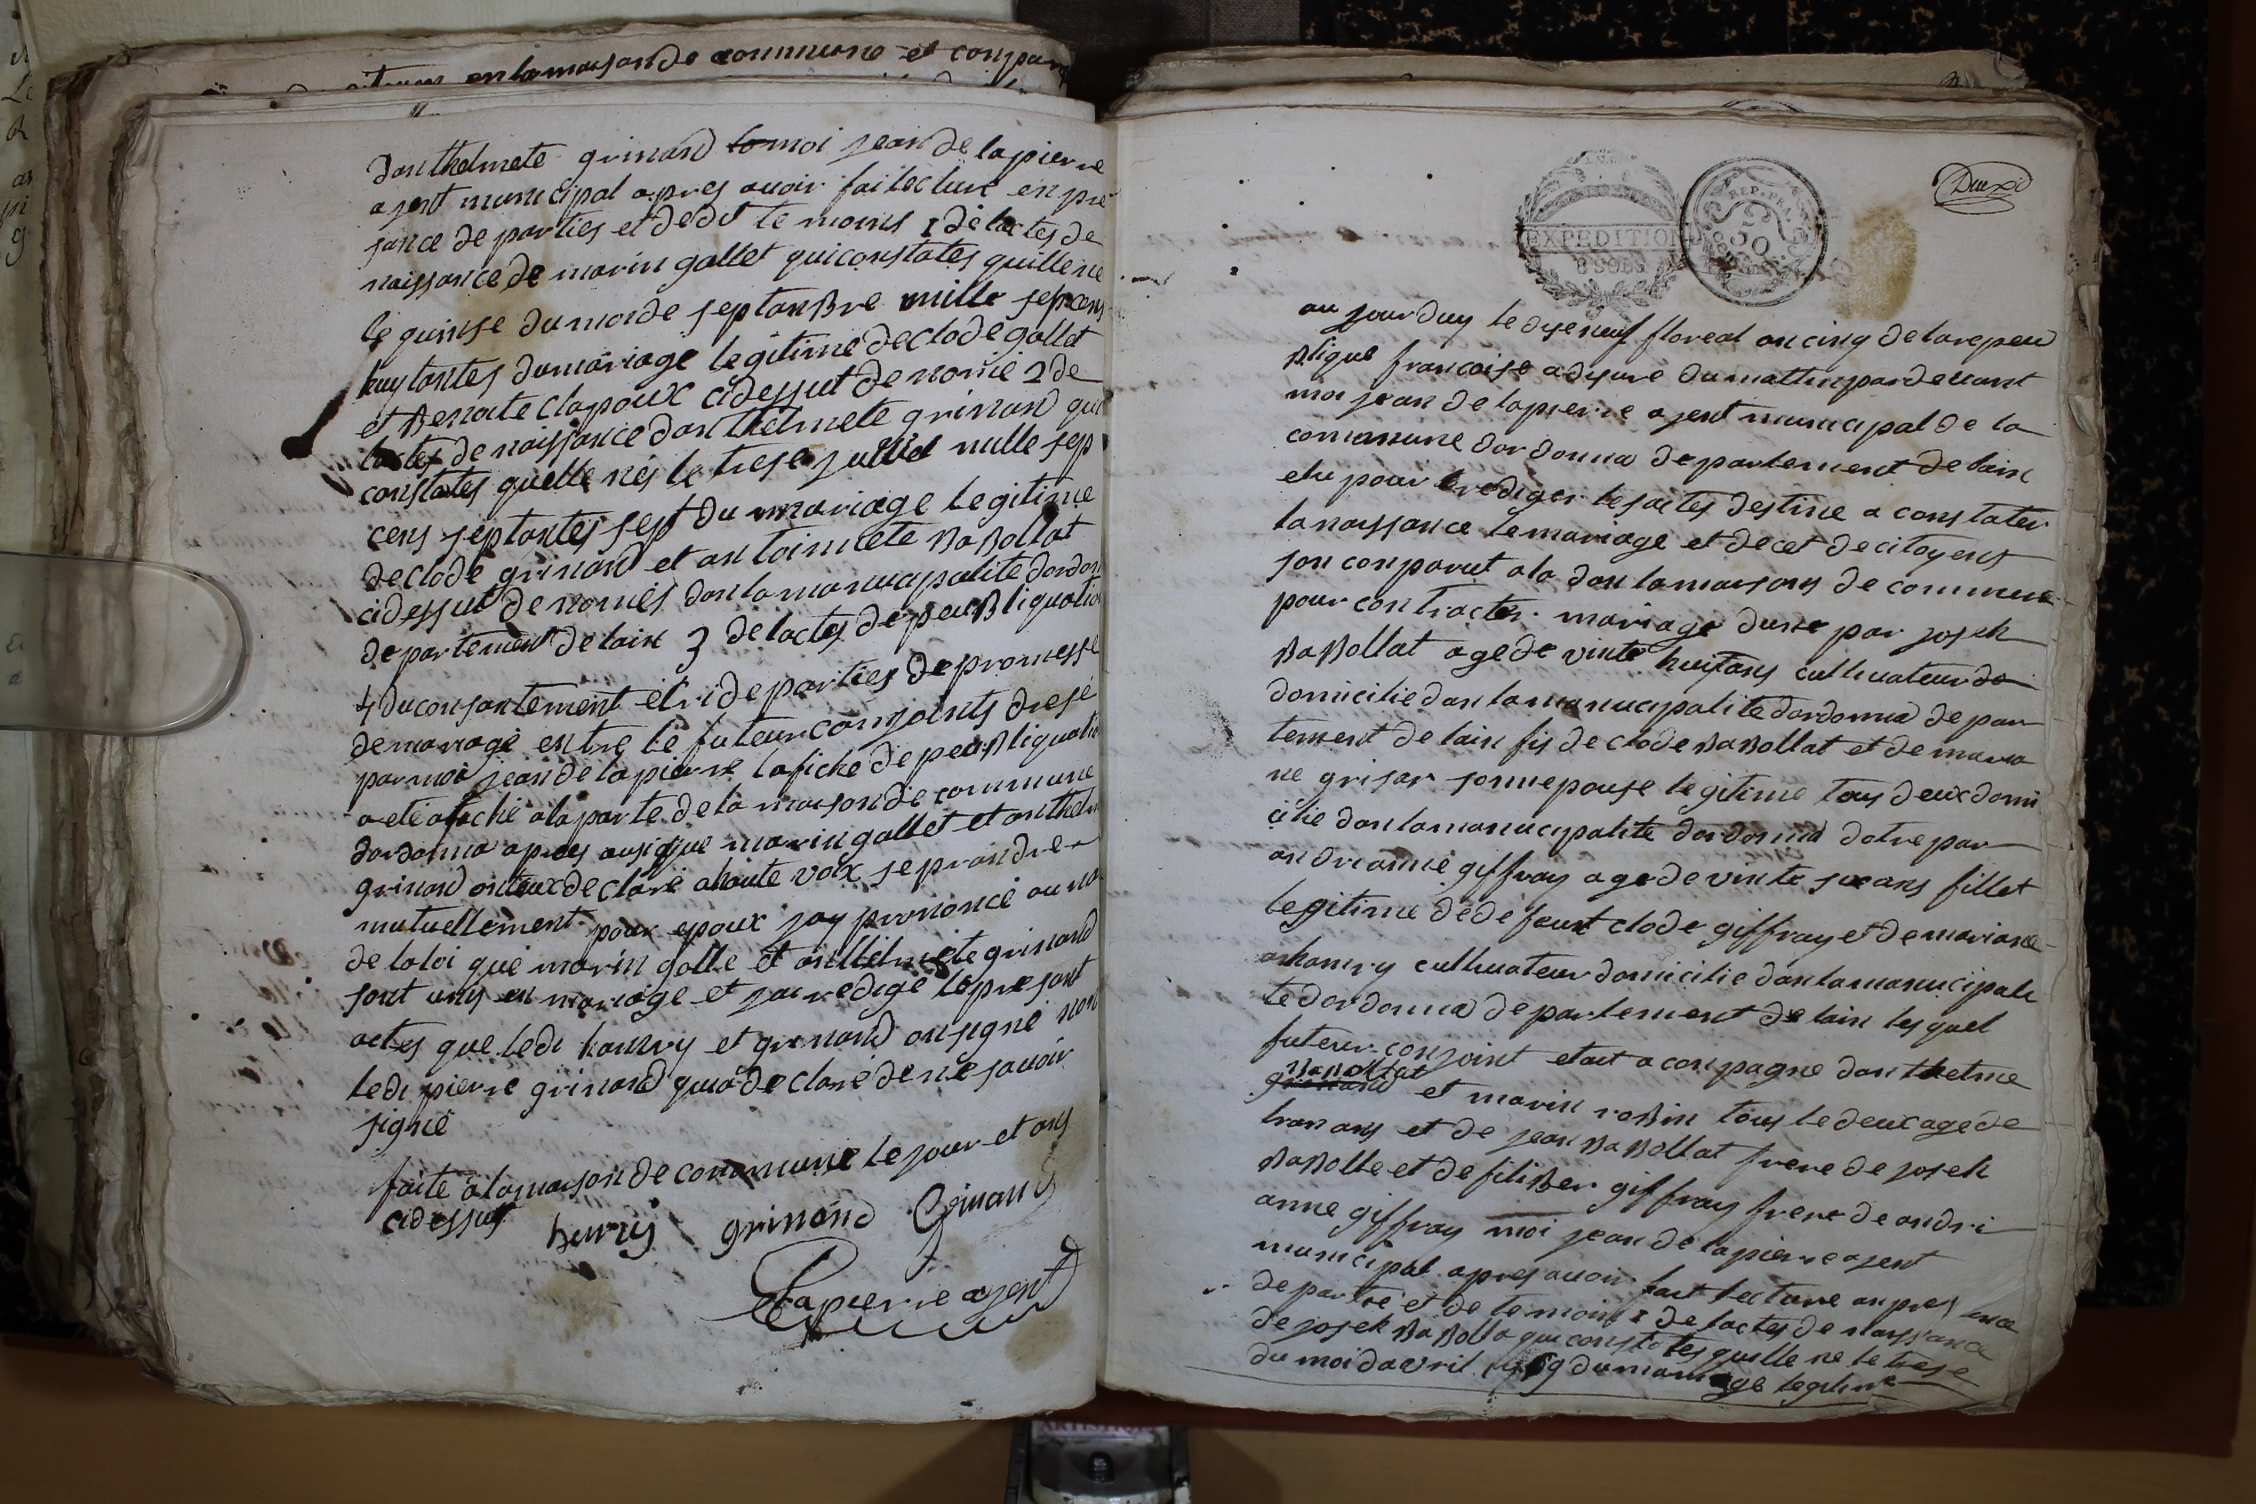 en la maison de commune et compar
danthelmete grinand moi jean de lapierre
agent municipal apres avoir fai lecture en pre
sance de parties et dedit temoins 1 de lactes de
naissance de marin gallet qui constates quille ne
le quinse du moi de septanbre mille sepcens
huytantes du mariage legitime de clode gallet
et Benoite clapoux cidessut denomé 2 de
lactes de naissance danthelmete grinand qui
constates quelle nés le trese juillet mille sep
cens septantes sept du mariage legitime
de clode grinand et antoinnete Babollat
cidessut denomés dan la manucipalite dordon
departement de lain 3 de lactes de peubliquatio
4 du consantement de parties de promesse
de mariage entre le futeur conjoints dresé
par moi jean de lapierre lafiche de peubliquatio
a ete afaché a la porte de la maison de commune
dordonna apres ausi que marin gallet et anthelm
grinand onteux declaré a haute voix seprandre
mutuellement pour epoux jay prononcé au no
de la loi que marin galle et anthelmete grinand
sont unis en mariage et jai redigé lepresant
actes que ledi hanrry et grinand on signé non
ledi pierre grinand qua declaré dene savoir
signé
faite a la maison de commune le jour et ans
cidessus
henrry grinand Grinand
Lapierre agent
EXPEDITION
8 SOLS
REP. FRA.
50
au jourduy le dyeneuf floreal an cinq de la repeu
blique francaise a dyeure du mattin pardevant
moi jean de lapierre agent municipal de la
commune dordonna departement de lain
elu pour redigér lesactes destine a constater
la naissance le mariage et decet de citoyens
son conparut a la dan la maisons de commune
pour contracter mariage dune par josek
Babollat age de vinte huitans cultivateur de
domicilié dan la manucipalite dordonna depar
tement de lain fis de clode Babollat et de maria
ne grisar sonne pouse legitime tous deux domi
cilie dan la manucipalite dordonna dotre par
andrianne giffray age de vinte sixans fillet
legitime de defeunt clode giffray et de mariane
anhanry cultivateur domicilie dan la manucipale
te dordonna departement de lain lesquel
futeur conjoint etait aconpagne danthelme
Babollat
grinand et marin robin tous le deux age de
tran ans et de jean Babollat frere de josek
Babolle et de filiber giffray frere de andri
anne giffray moi jean de lapierre agent
municipal apres avoir fait lecture an pres ance
de partie et de temoins 1 de lactes de naissance
de josek Babolla qui constates quille ne le trese
du moi davril 1769 du mariage legitime